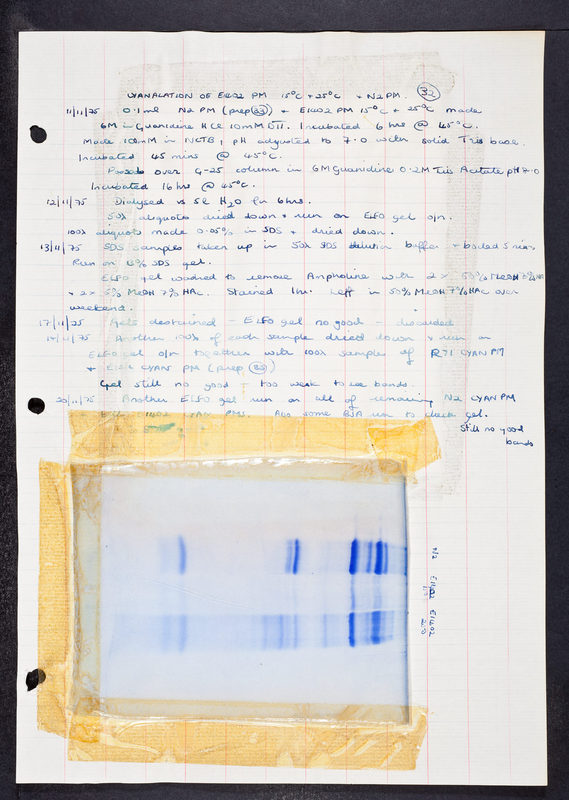 CYANALATION OF E1402 PM 15°C + 25°C + N2 PM 32
11/11/75 0.1ml N2 PM (prep 23) + E1402 PM 15°C + 25°C made
6M in Guanidine HCl 10mM DTT. Incubated 6 hrs @ 45°C.
Made 100mM in NCTB, pH adjusted to 7.0 with solid Tris base.
Incubated 45 mins @ 45°C.
Passed over G-25 column in 6M Guanidine 0.2M Tris Acetate pH 7.0
Incubated 16 hrs @ 45°C.
12/11/75 Dialysed vs 5l H2O for 6 hrs.
50λ aliquots dried down + run on ELFO gel o/n.
100λ aliquots made 0.05% in SDS + dried down.
13/11/75 SDS samples taken up in 50λ SDS dilution buffer + boiled 5 mins
Run on 15% SDS gel.
ELFO gel washed to remove Ampholine with 2 x 50% MeOH 7% HAc
+ 2 x 5% MeOH 7% HAc. Stained 1hr. Left in 5% MeOH 7% HAc over
weekend.
17/11/75 Gels destained - ELFO gel no good - discarded.
Another 100λ of each sample dried down + run on
ELFO gel o/n together with 100λ samples of R71 CYAN PM
+ CYAN PM (prep 23)
Gel still no good - too weak to see bands.
20/11/75 Another ELFO gel run on all of remaining N2 CYAN PM
E1402 CYAN PMS. Also some BSA run to check gel.
Still no good
bands
N2 E1402 15° E1402 25°